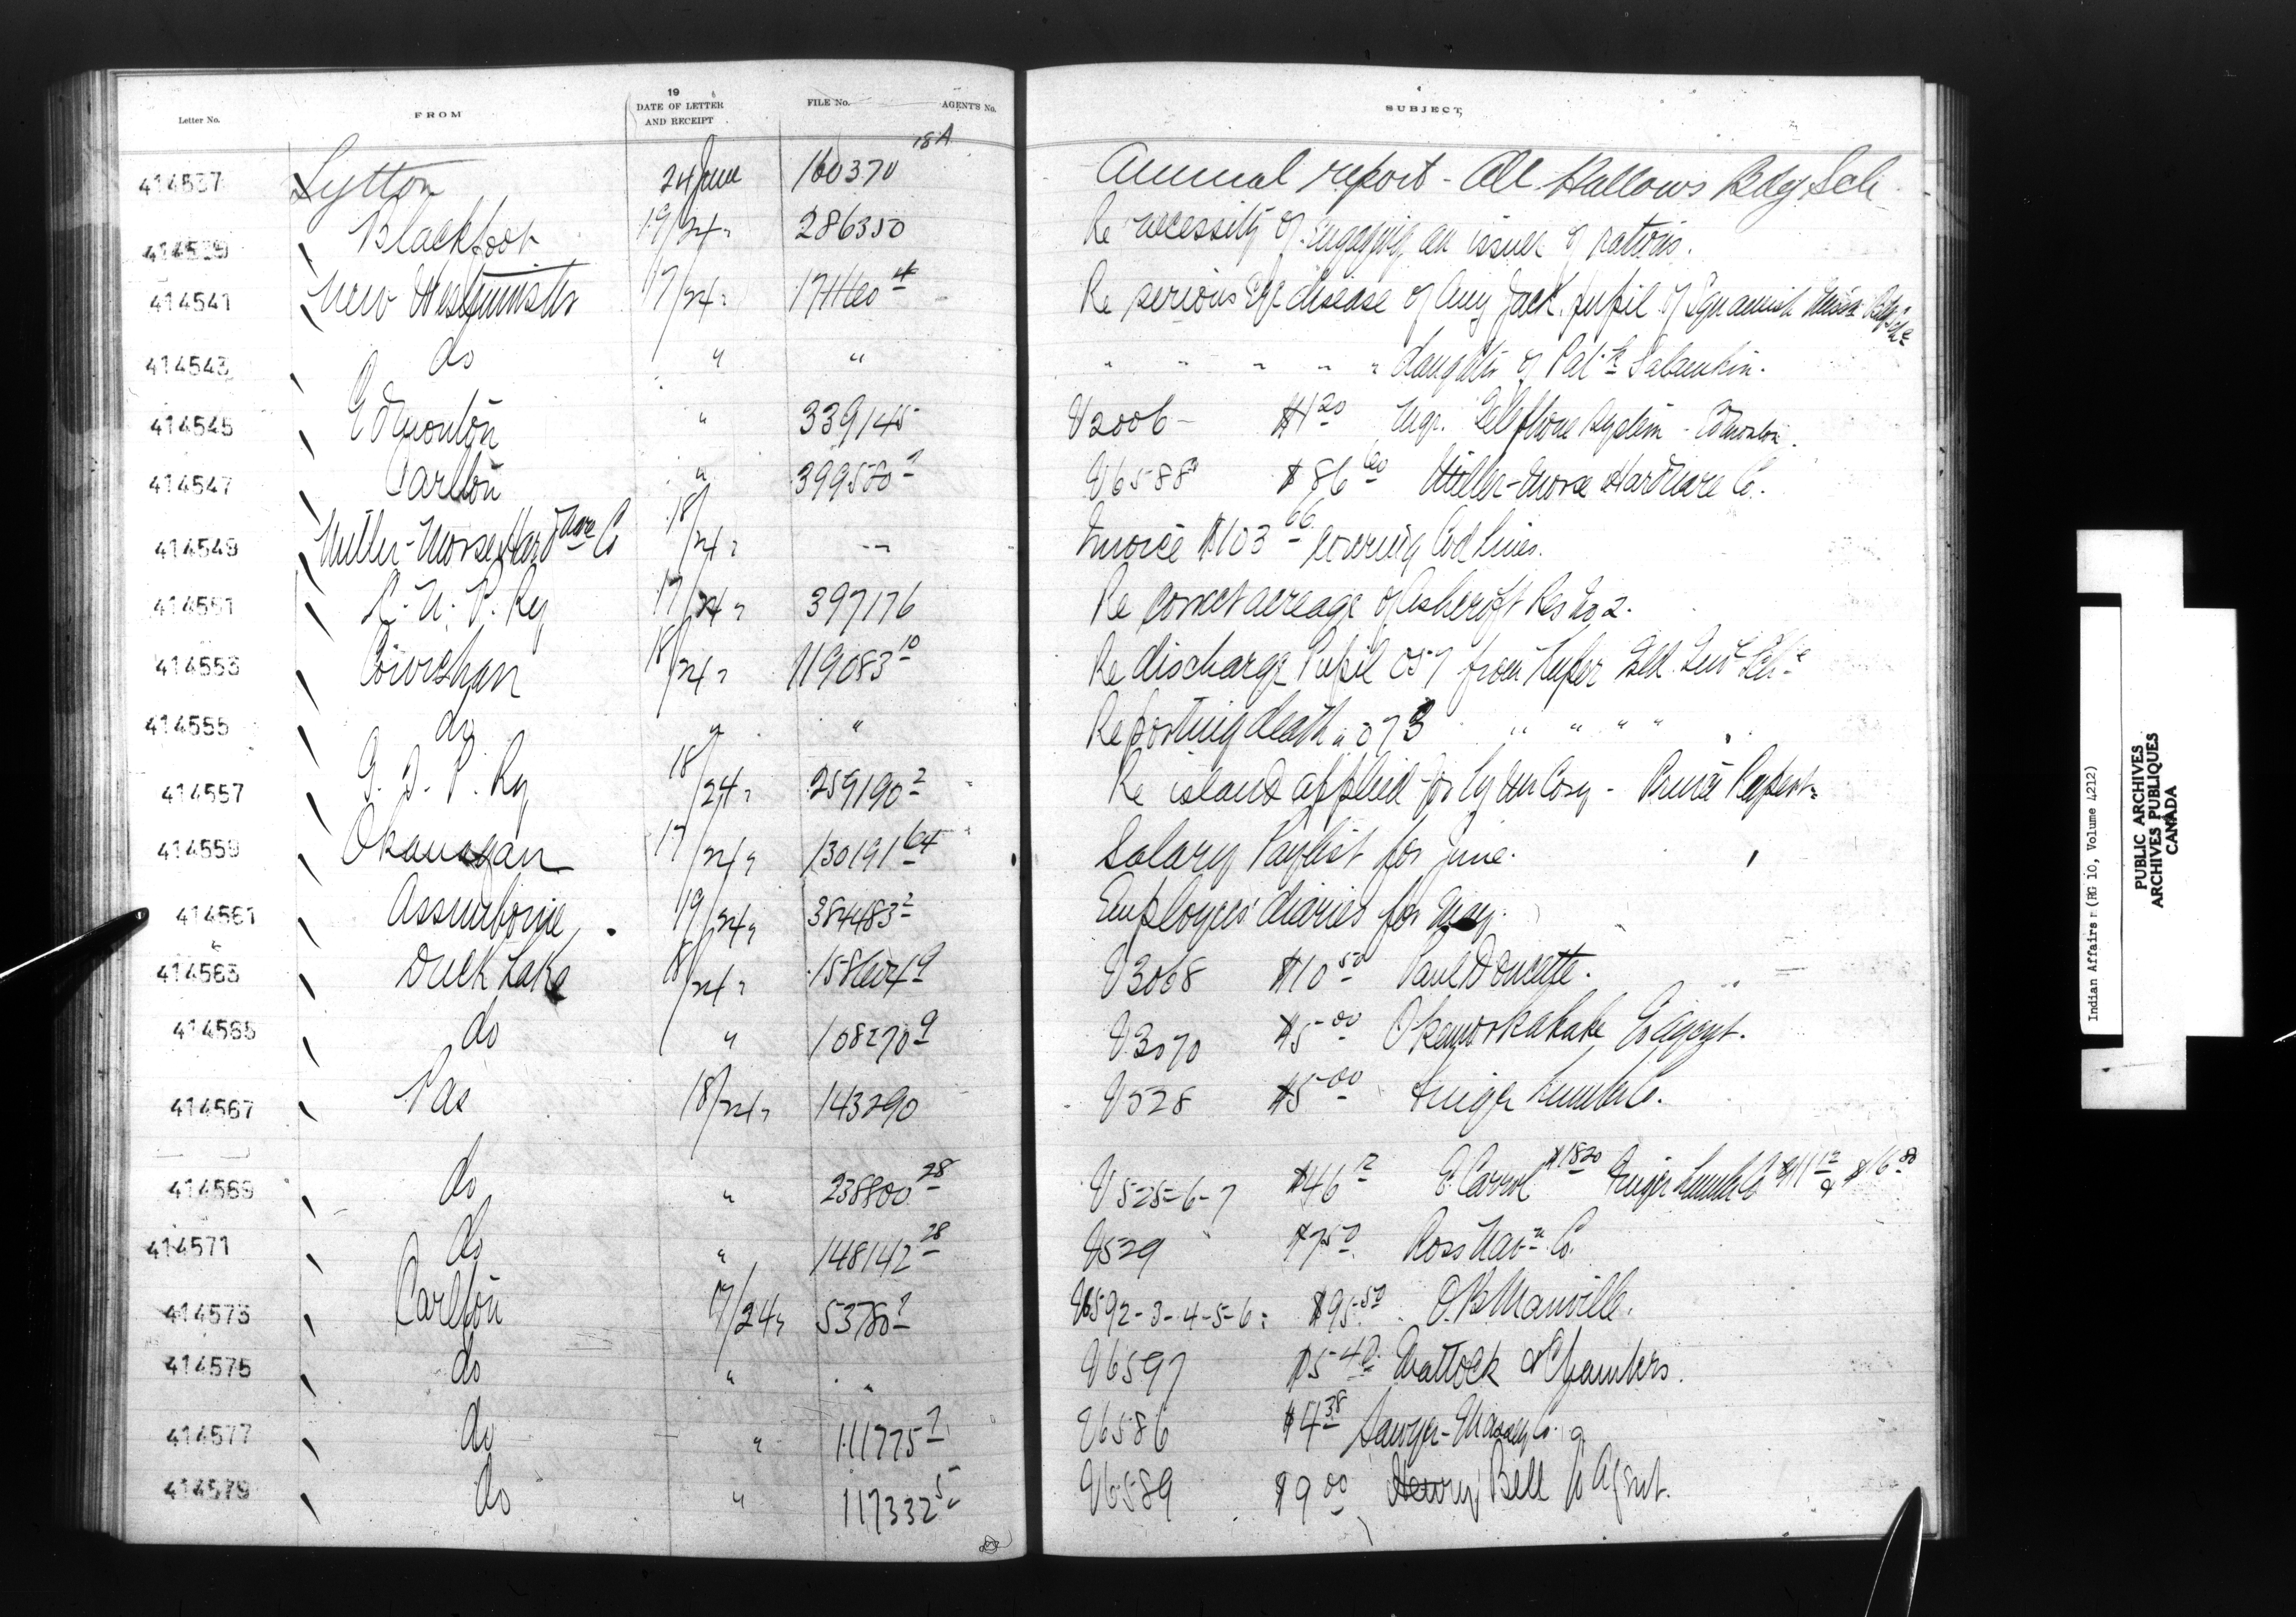 Letter No. FROM 19 DATE OF LETTER AND RECEIPT FILE No. AGENT'S No. SUBJECT
414537 Lytton 24 June 160370 18A Annual report - All Hallows Bdg Sch
414539 Blackfoot 19/24 " 286350 Re necessity of engaging an issuer of rations.
414541 New Westminster 17/24 " Re serious eye disease of Amy Jack, pupil of Squamish Miss'n Bdg Sch.
414543 do " " " " " " " daughter of
414545 Edmonton " 339145 V2006 - $1 20 Mgr. Telephone System - Edmonton.
414547 Carlton " 399580 2 V6588 $86 60 Miller-Morse Hardware Co.
414549 Miller-Morse Hardware Co 18/24 " -- Invoice $103 66 covering Cod lines.
414551 C. N. P. Ry 17/24 " 397176 Re correct acreage of Ashcroft Res No 2.
414553 Cowichan 18/24 " 119083 10 Re discharge Pupil 057 from Kuper Isld Ind'l Sch.
414555 do " " Reporting death " 073 " " " "
414557 G. T. P. Ry 18/24 " 259190 2 Re island applied for by - Prince Rupert.
414559 Okanagan 17/24 " 130191 64 Salary Paylist for June.
414561 Assiniboine 19/24 " 384483 2 Employees' diaries for May.
414563 Duck Lake 18/24 " V3068 $10 50 Paul Doucette.
414565 do " 108270 9 V3070 $5 00 to Agent.
414567 Pas 18/24 " 143290 V528 $5 00 Finger Lumber Co.
414569 do " 238800 28 V525-6-7 $46 12 E. Carrol $18 20 Finger Lumber Co $11 12 & $16 80
414571 do " 148142 28 V529 $7 50 Ross Nav'n Co.
414573 Carlton 17/24 " 53780 2 V6592-3-4-5-6 : $95 50 O. B. Manville.
414575 do " " V6597 $5 40 Mattock & Chambers.
414577 do " 111775 2 V6586 $4 38 Sawyer-Massey Co.
414579 do " 117332 5 V6589 $9 00 Henry Bell to Agent.
Indian Affairs (RG 10, Volume 4212)
PUBLIC ARCHIVES
ARCHIVES PUBLIQUES
CANADA